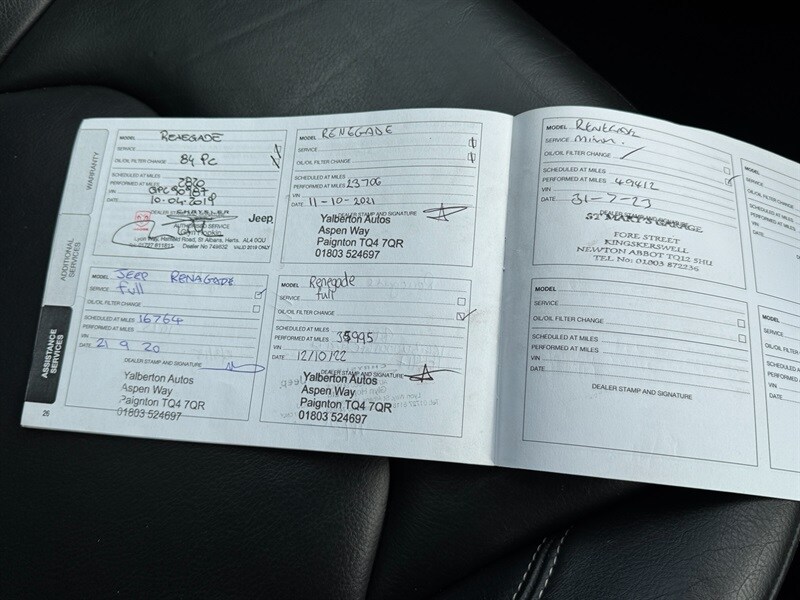 WARRANTY
ADDITIONAL SERVICES
ASSISTANCE SERVICES
26
MODEL RENEGADE
SERVICE
OIL/OIL FILTER CHANGE 84 PC
SCHEDULED AT MILES
PERFORMED AT MILES 7820
VIN
DATE 10.04.2019
DEALER
CHRYSLER
Jeep
AUTHORISED SERVICE
Lyon Way, Hatfield Road, St Albans, Herts. AL4 0QU
Dealer No VALID 2019 ONLY
MODEL Jeep RENAGADE
SERVICE full
OIL/OIL FILTER CHANGE
SCHEDULED AT MILES 16764
PERFORMED AT MILES
VIN
DATE 21 9 20
DEALER STAMP AND SIGNATURE
Yalberton Autos
Aspen Way
Paignton TQ4 7QR
01803 524697
MODEL RENEGADE
SERVICE
OIL/OIL FILTER CHANGE
SCHEDULED AT MILES
PERFORMED AT MILES 23706
VIN
DATE 11-10-2021
DEALER STAMP AND SIGNATURE
Yalberton Autos
Aspen Way
Paignton TQ4 7QR
01803 524697
MODEL Renegade
SERVICE full
OIL/OIL FILTER CHANGE
SCHEDULED AT MILES
PERFORMED AT MILES 35995
VIN
DATE 12/10/22
DEALER STAMP AND SIGNATURE
Yalberton Autos
Aspen Way
Paignton TQ4 7QR
01803 524697
MODEL
SERVICE
OIL/OIL FILTER CHANGE
SCHEDULED AT MILES
PERFORMED AT MILES 49412
VIN
DATE 31-7-23
DEALER STAMP AND SIGNATURE
ST MARY'S GARAGE
FORE STREET
KINGSKERSWELL
NEWTON ABBOT TQ12 5HU
TEL No: 01803 872236
MODEL
SERVICE
OIL/OIL FILTER CHANGE
SCHEDULED AT MILES
PERFORMED AT MILES
VIN
DATE
DEALER STAMP AND SIGNATURE
MODEL
SERVICE
OIL/OIL
SCHEDULED
PERFORMED
VIN
DATE
MODEL
SERVICE
OIL/OIL FI
SCHEDULED A
PERFORMED
VIN
DATE